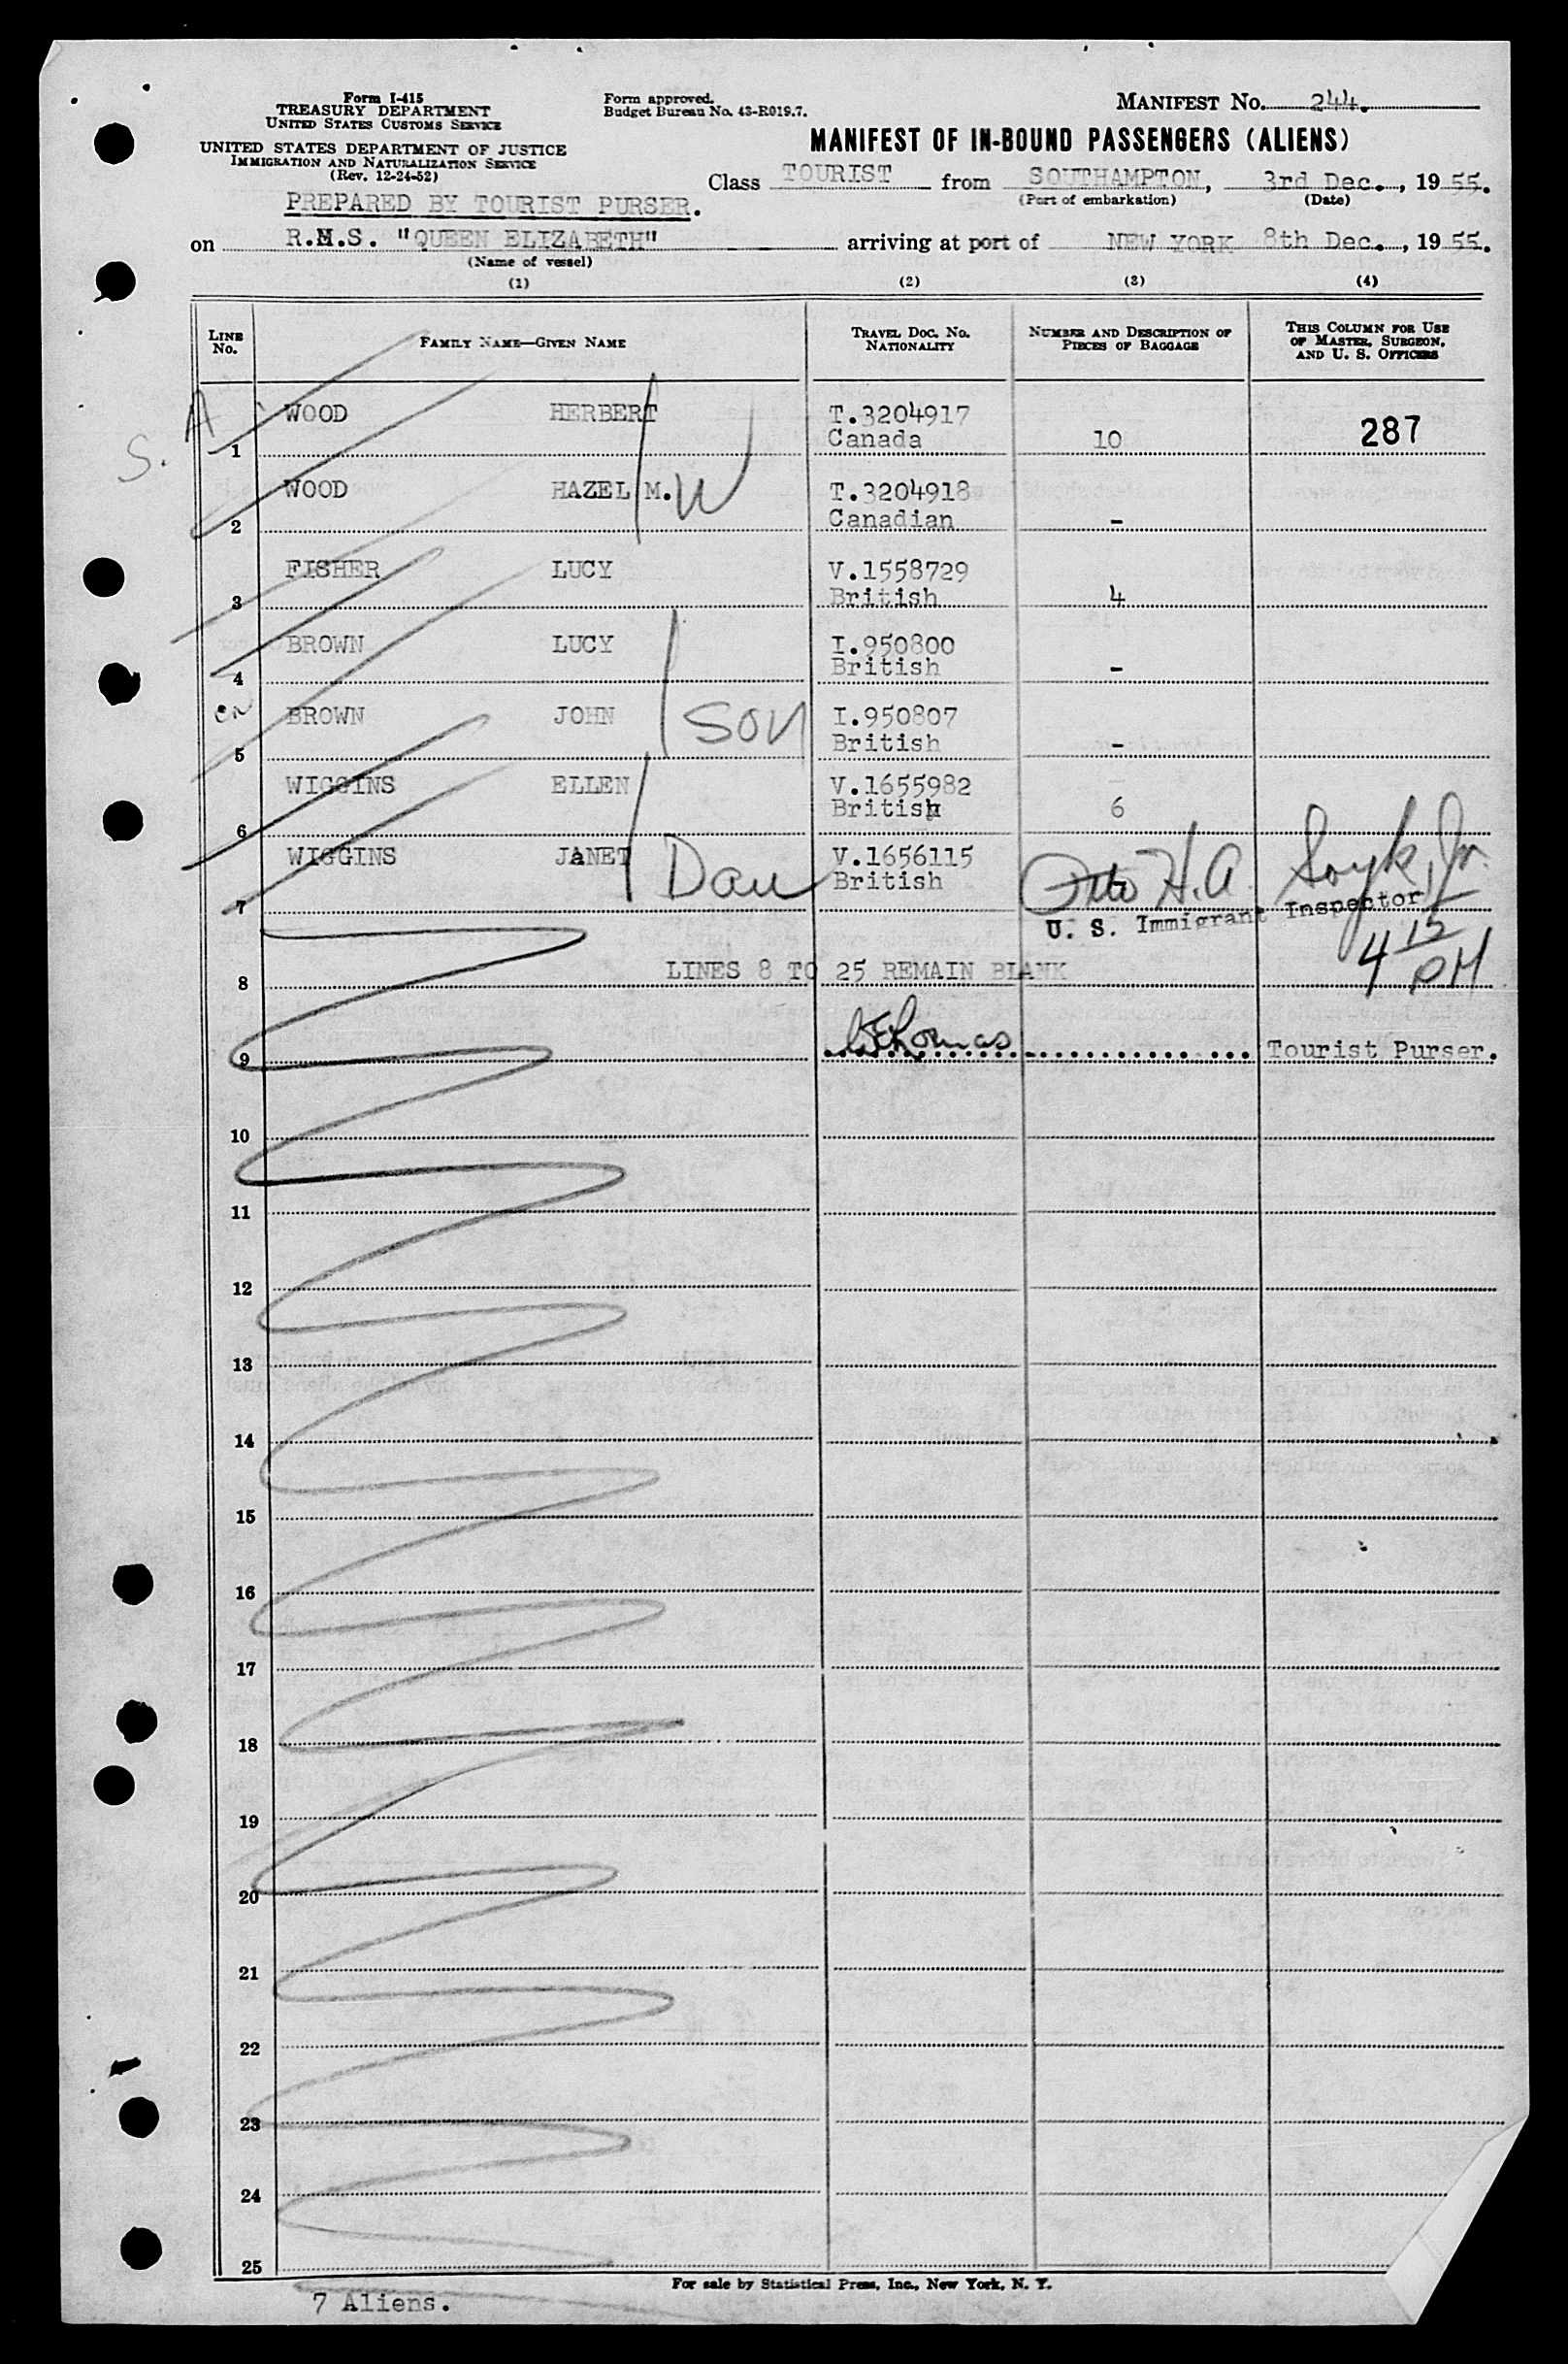 Form I-415
TREASURY DEPARTMENT
UNITED STATES CUSTOMS SERVICE
UNITED STATES DEPARTMENT OF JUSTICE
IMMIGRATION AND NATURALIZATION SERVICE
(Rev. 12-24-52)
Form approved.
Budget Bureau No. 43-R019.7.
MANIFEST No. 244.
MANIFEST OF IN-BOUND PASSENGERS (ALIENS)
Class TOURIST from SOUTHAMPTON, 3rd Dec., 1955.
(Port of embarkation) (Date)
PREPARED BY TOURIST PURSER.
on R.M.S. "QUEEN ELIZABETH" arriving at port of NEW YORK 8th Dec., 1955.
(Name of vessel)
(1) (2) (3) (4)
LINE No. FAMILY NAME—GIVEN NAME TRAVEL DOC. No. NATIONALITY NUMBER AND DESCRIPTION OF PIECES OF BAGGAGE THIS COLUMN FOR USE OF MASTER, SURGEON, AND U. S. OFFICERS
S. A
WOOD HERBERT T.3204917
1 Canada 10 287
WOOD HAZEL M. W T.3204918
2 Canadian -
FISHER LUCY V.1558729
3 British 4
BROWN LUCY I.950800
4 British -
BROWN JOHN son I.950807
5 British -
WIGGINS ELLEN V.1655982
6 British 6
WIGGINS JANET Dau V.1656115
7 British
Otto H.A. Soyk, Jr.
U. S. Immigrant Inspector
4 15 PM
8 LINES 8 TO 25 REMAIN BLANK
9 Thomas Tourist Purser.
10
11
12
13
14
15
16
17
18
19
20
21
22
23
24
25
For sale by Statistical Press, Inc., New York, N. Y.
7 Aliens.